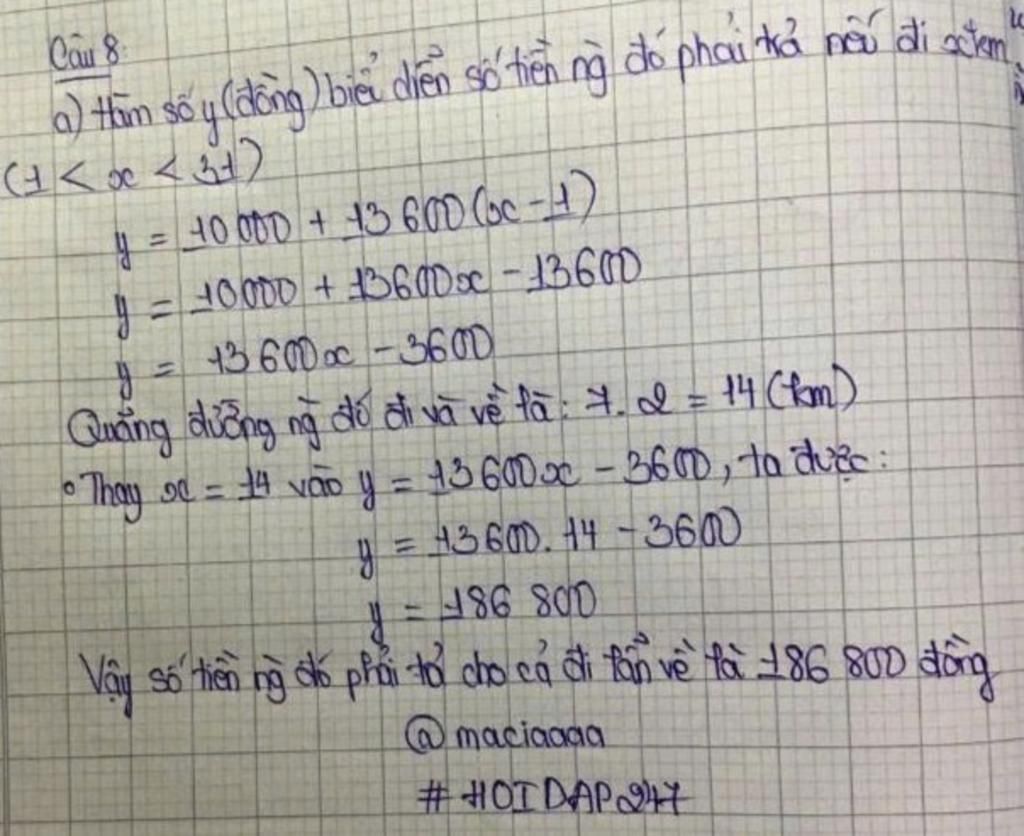 Câu 8:
a) Hàm số y (đồng) biểu diễn số tiền ng đó phải trả nếu đi x km
(1 < x < 31)
y = 10 000 + 13 600 (x - 1)
y = 10 000 + 13600x - 13600
y = 13 600x - 3600
Quãng đường ng đó đi và về là: 7. 2 = 14 (km)
• Thay x = 14 vào y = 13600x - 3600, ta được:
y = 13600. 14 - 3600
y = 186 800
Vậy số tiền ng đó phải trả cho cả đi lẫn về là 186 800 đồng
@maciaaaa
# HOIDAP247